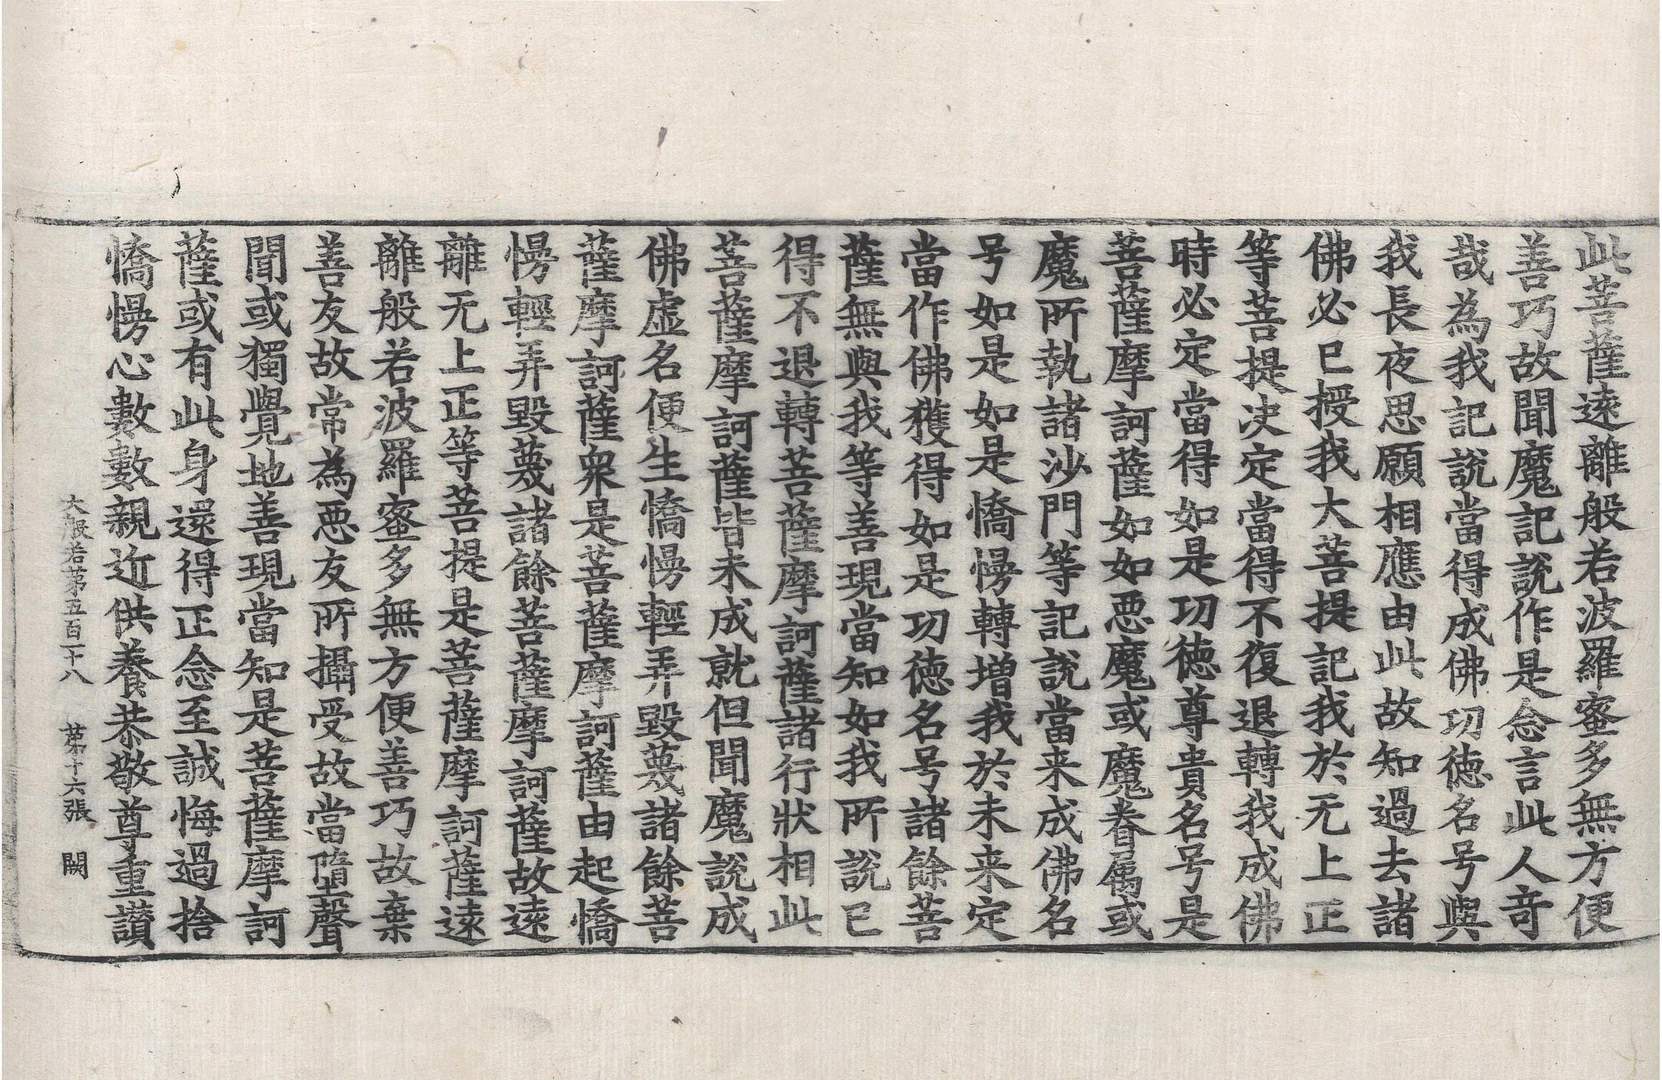 此菩薩遠離般若波羅蜜多無方便
善巧故聞魔記說作是念言此人竒
哉為我記說當得成佛功徳名号與
我長夜思願相應由此故知過去諸
佛必已授我大菩提記我於无上正
等菩提决定當得不復退轉我成佛
時必定當得如是功徳尊貴名号是
菩薩摩訶薩如如悪魔或魔眷属或
魔所執諸沙門等記說當来成佛名
号如是如是憍慢轉増我於未来定
當作佛獲得如是功徳名号諸餘菩
薩無與我等善現當知如我所說已
得不退轉菩薩摩訶薩諸行狀相此
菩薩摩訶薩皆未成就但聞魔說成
佛虛名便生憍慢輕弄毀蔑諸餘菩
薩摩訶薩衆是菩薩摩訶薩由起憍
慢輕弄毀蔑諸餘菩薩摩訶薩故遠
離无上正等菩提是菩薩摩訶薩遠
離般若波羅蜜多無方便善巧故棄
善友故常為悪友所攝受故當墮聲
聞或獨覺地善現當知是菩薩摩訶
薩或有此身還得正念至誠悔過捨
憍慢心數數親近供養恭敬尊重讃
大般若第五百一十八 第十六張 闕